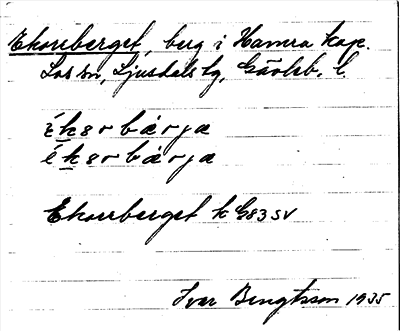 Ekorrberget, berg i Hamra kap.
Los sn, Ljusdals tg, Gävleb. l.
ék8orbärja
éksorbärja
Ekorrberget k G83 SV
Ivar Bengtsson 1935